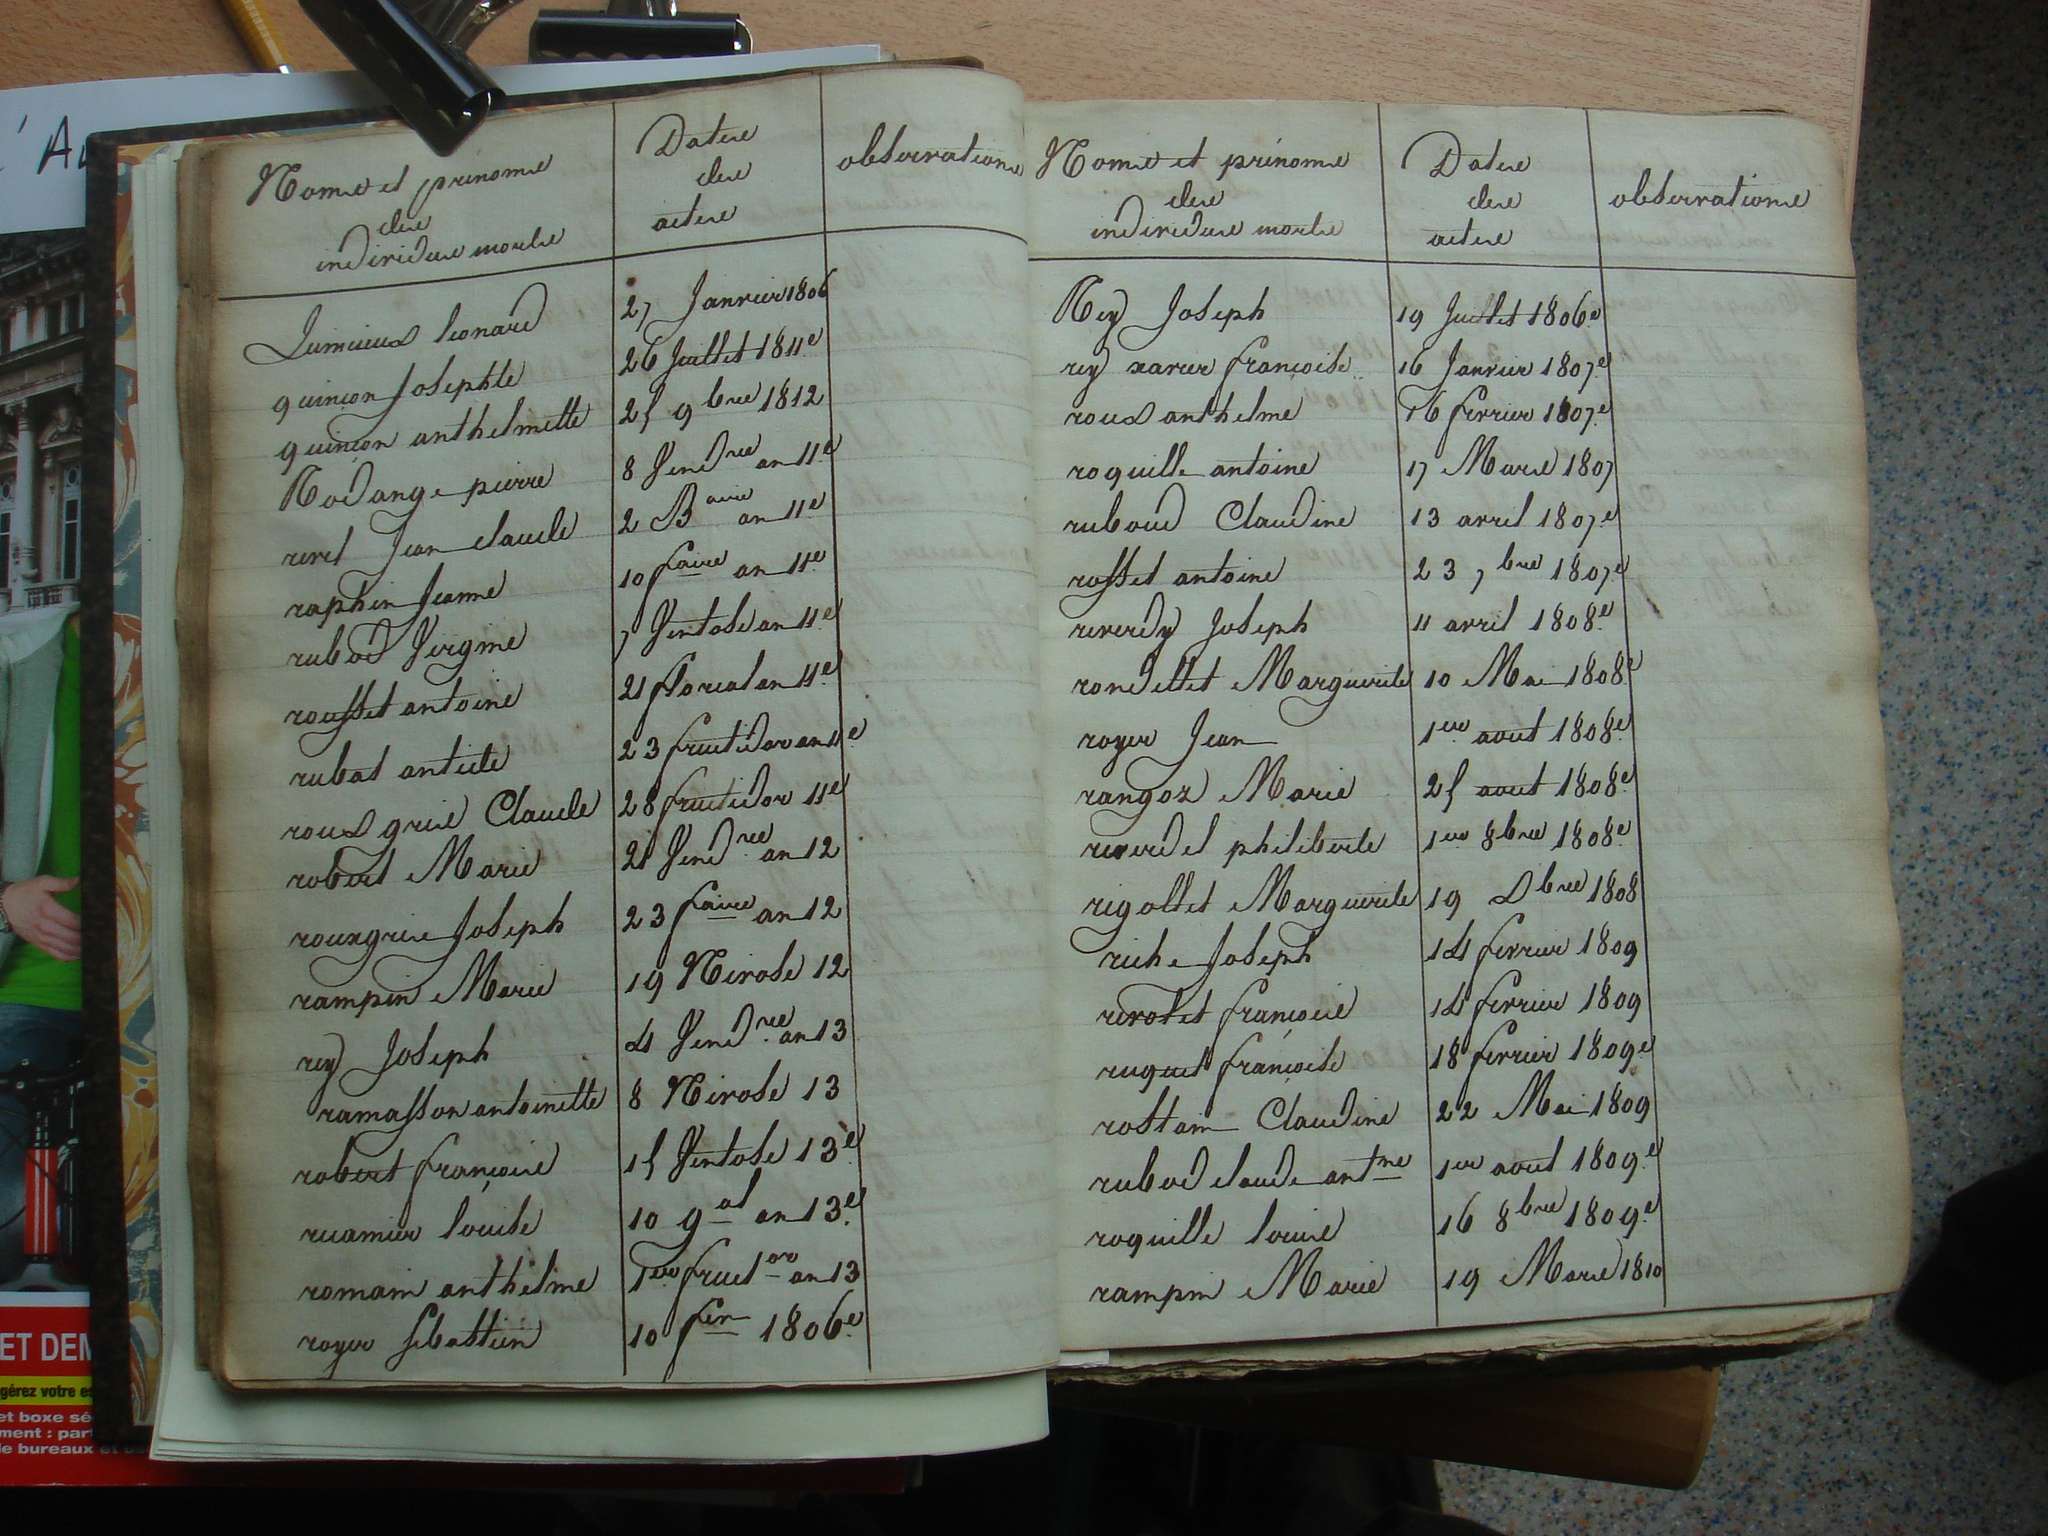 'A
Noms et prénoms
des
individus morts
Dates
des
actes
observations
27 Janvier 1806
quinson Josephte 26 Juillet 1811e
quinson anthelmette 25 9bre 1812
Rodange pierre 8 Vendre an 11e
revel Jean claude 2 Baire an 11e
raphin Jeanne 10 faire an 11e
rubod Virginie 7 Ventose an 11e
rousset antoine 21 floreal an 11e
rubat 23 fructidor an 11e
roux gris Claude 28 fructidor 11e
robert Marie 21 Vendre an 12
rouxgris Joseph 23 faire an 12
rampin Marie 19 Nivose 12
rey Joseph 4 Vendre an 13
ramasson antoinette 8 Nivose 13
robert françois 15 Ventose 13e
ruamier louise 10 gal an 13e
romain anthelme 1er fructor an 13
royer sebastien 10 fer 1806e
Noms et prénoms
des
individus morts
Dates
des
actes
observations
Rey Joseph 19 Juillet 1806e
rey xavier françoise 16 Janvier 1807e
roux anthelme 16 fevrier 1807e
roquille antoine 17 Mars 1807
ruboud Claudine 13 avril 1807e
rosset antoine 23 7bre 1807e
reverdy Joseph 11 avril 1808e
rondellet Marguerite 10 Mai 1808e
royer Jean 1er aout 1808e
rangoz Marie 25 aout 1808e
reverdel philiberte 1er 8bre 1808e
rigollet Marguerite 19 Dbre 1808
riche Joseph 14 fevrier 1809
rivolet françois 14 fevrier 1809
ruquet françoise 18 fevrier 1809e
rostain Claudine 22 Mai 1809
rubod claude antme 1er aout 1809e
roquille louise 16 8bre 1809e
rampin Marie 19 Mars 1810
ET DEM
gérez votre es
et boxe sé
ment : part
de bureaux et